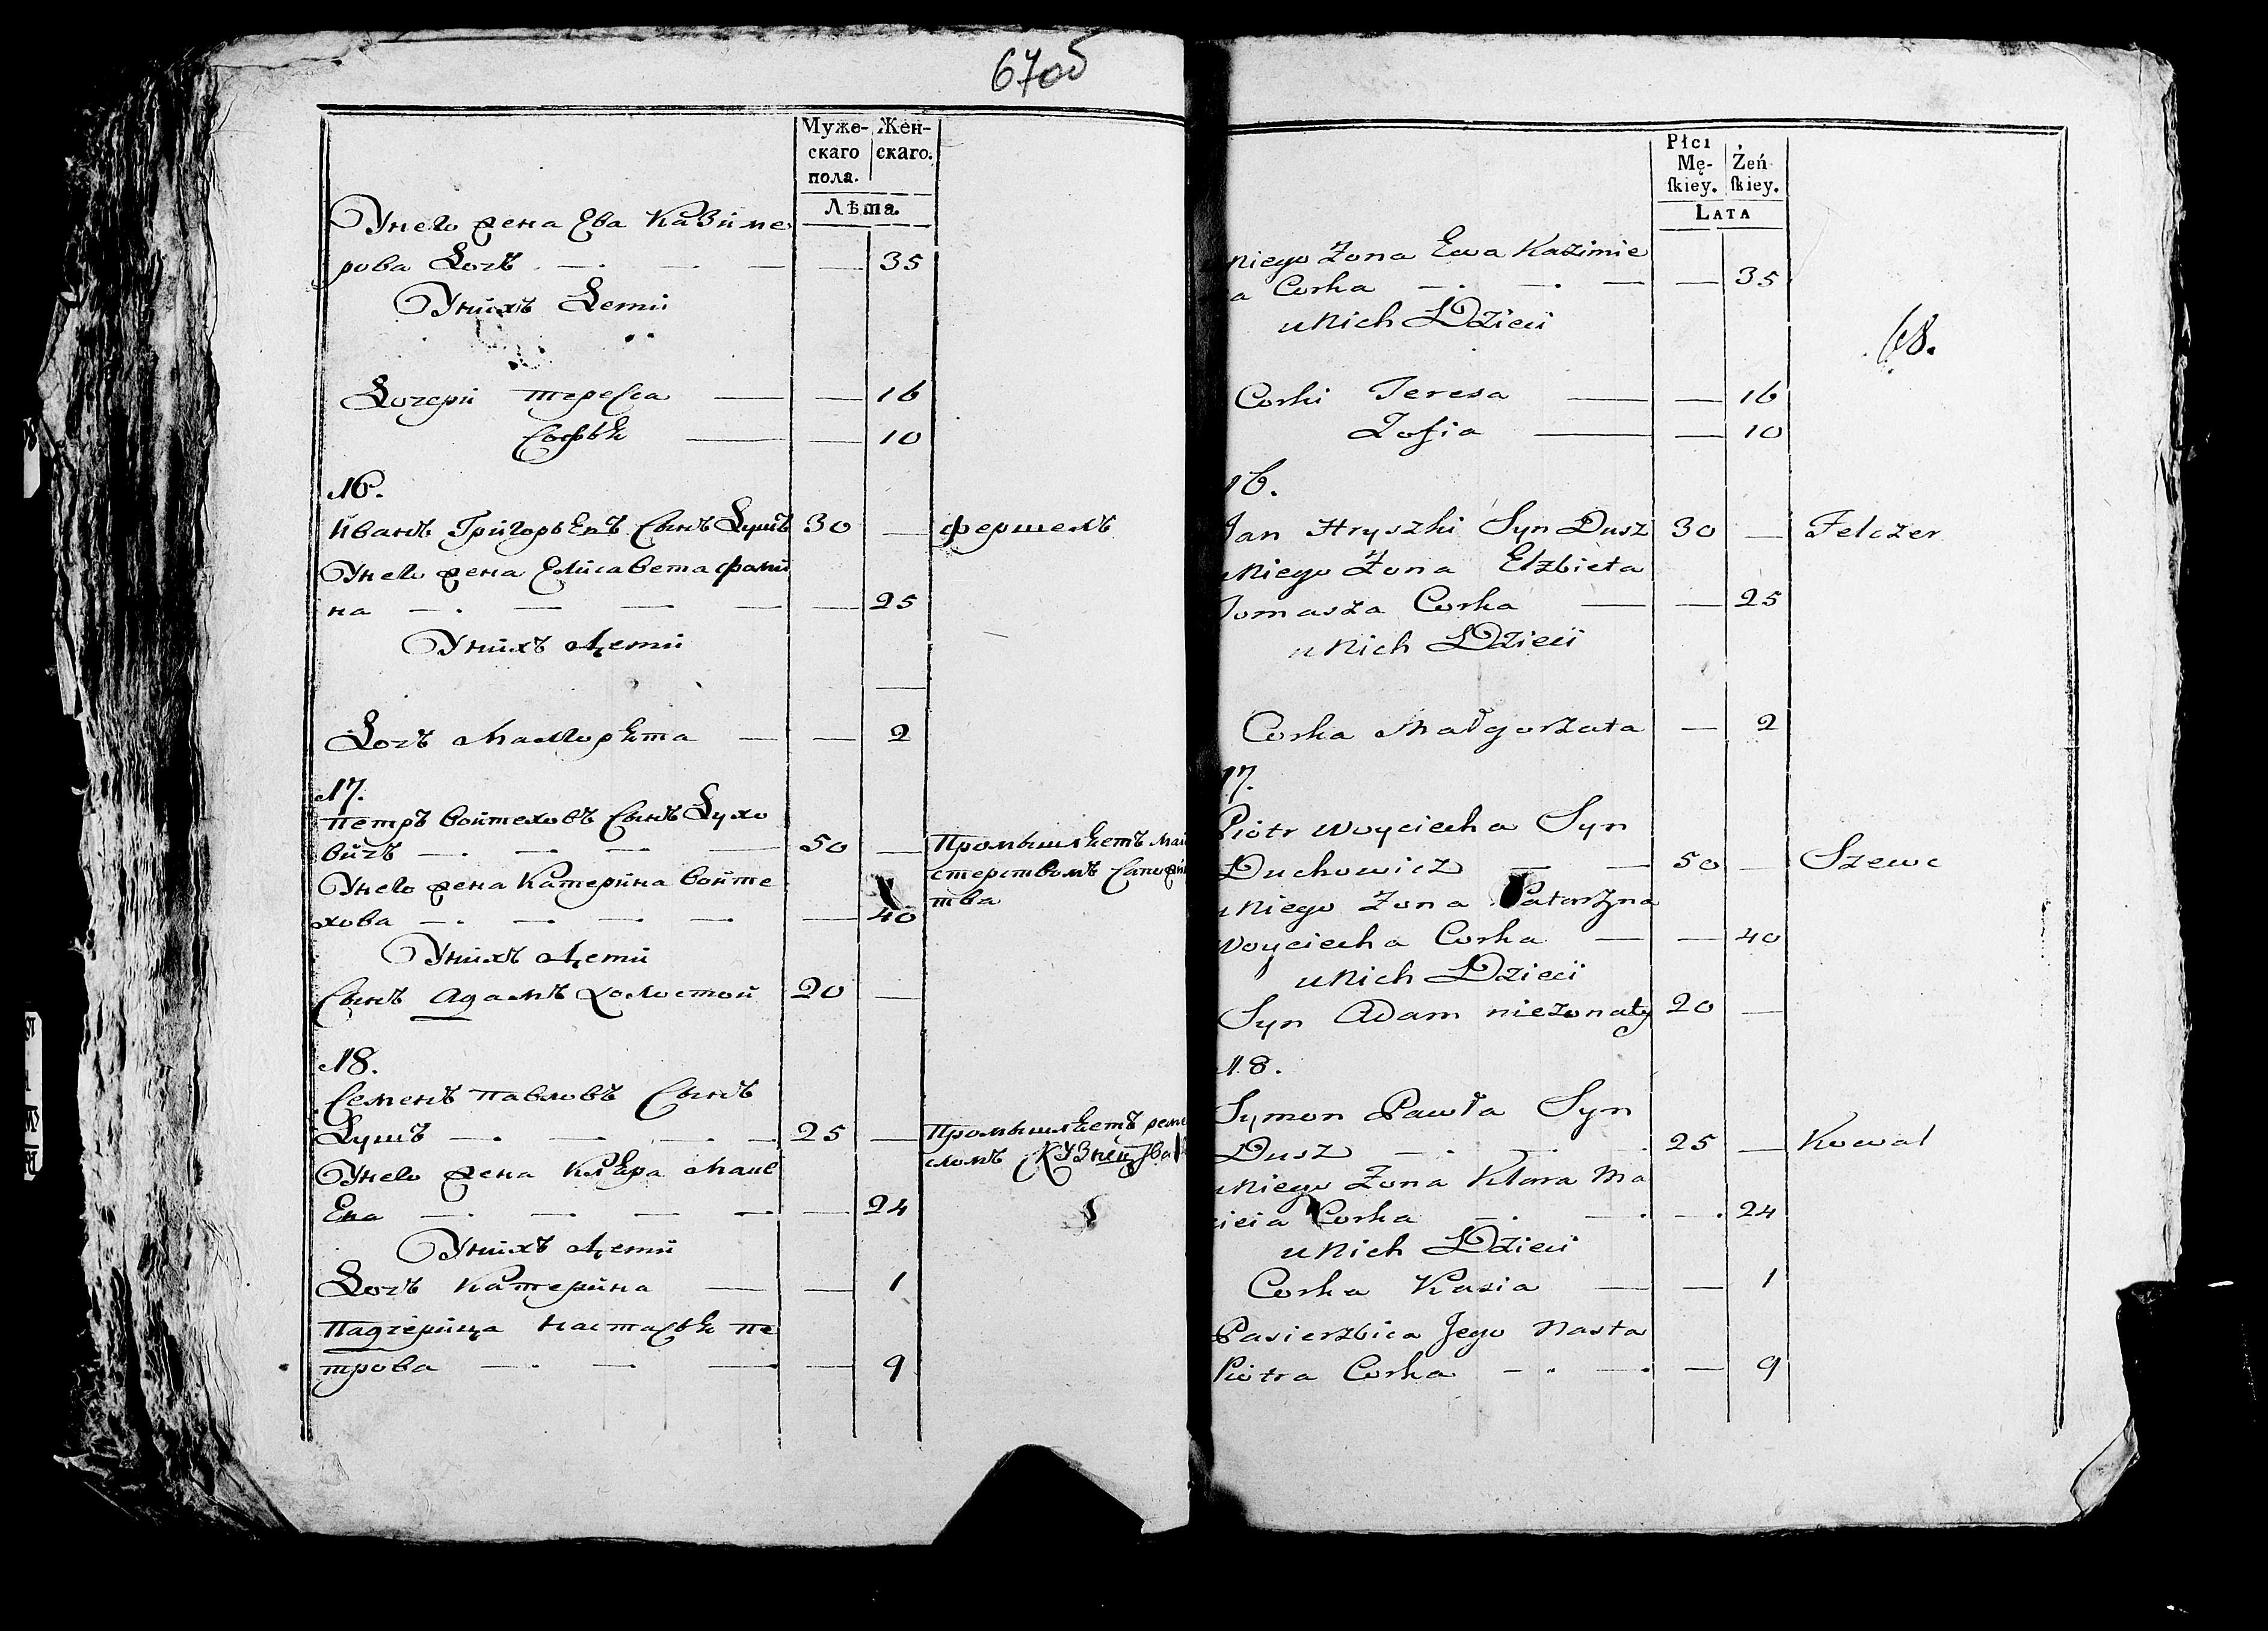 67об
Муже-
скаго
пола.
Жен-
скаго.
Лѣта.
Унего жена Ева Казиме
рова Дочь 35
Унихъ Дети
Дочери тереса 16
софья 10
16.
Иванъ Григорьевъ сынъ Душъ 30 фершелъ
Унего жена Елисавета фоми
на 25
Унихъ дети
Дочь Малгорета 2
17.
петръ войтеховъ сынъ Духо
вичъ 50 Промышляетъ май
стерствомъ сапожни
тва
Унего жена Катерина войте
хова 40
Унихъ дети
сынъ адамъ холостой 20
18.
семенъ павловъ сынъ
Душъ 25 промышляетъ реме
сломъ
Унего жена Клара
24
Унихъ дети
Дочь Катерина 1
падчерица настасья пе
трова 9
Płci
Mę-
ſkiey.
Żeń
ſkiey.
LATA
68.
niego Zona Ewa Kazimie
a Corka 35
u Nich Dzieci
Corki Teresa 16
Zofia 10
16.
Jan Hryszki Syn Dusz 30 Felczer
u Niego Zona Elzbieta
Tomasza Corka 25
u Nich Dzieci
Corka Małgorzata 2
17.
Piotr Woyciecha Syn
Duchowicz 50 Szewc
u Niego Zona Katarzyna
Woyciecha Corka 40
u Nich Dzieci
Syn Adam niezonaty 20
18.
Symon Pawła Syn
Dusz 25 Kowal
u Niego Zona Klara Ma
cieia Corka 24
u Nich Dzieci
Corka Kasia 1
Pasierzbica Jego Nasta
Piotra Corka 9